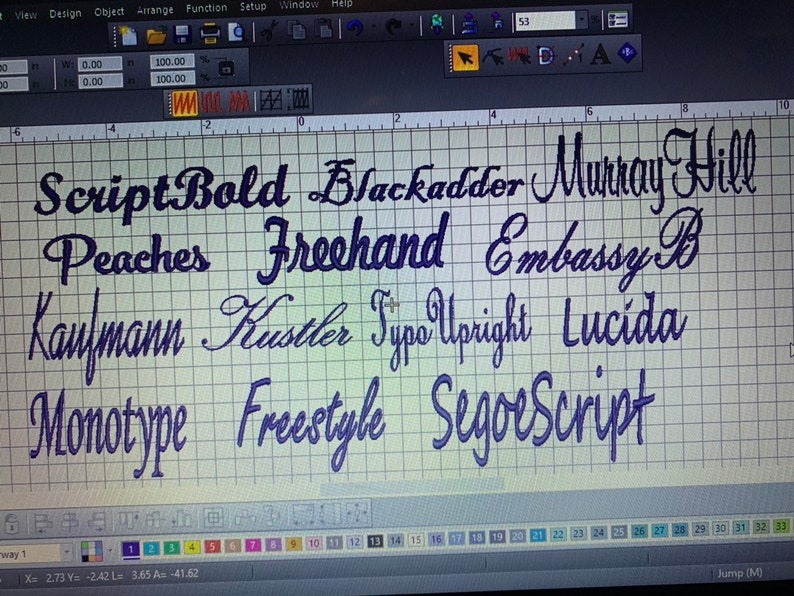 View Design Object Arrange Function Setup Window Help
53 %
W: 0.00 in 100.00 %
H: 0.00 in 100.00 %
-6 -4 -2 0 2 4 6 8 10
ScriptBold Blackadder MurrayHill
Peaches Freehand EmbassyB
Kaufmann Kustler TypoUpright Lucida
Monotype Freestyle SegoeScript
way 1 1 2 3 4 5 6 7 8 9 10 11 12 13 14 15 16 17 18 19 20 21 22 23 24 25 26 27 28 29 30 31 32 33
X= 2.73 Y= -2.42 L= 3.65 A= -41.62 Jump (M)